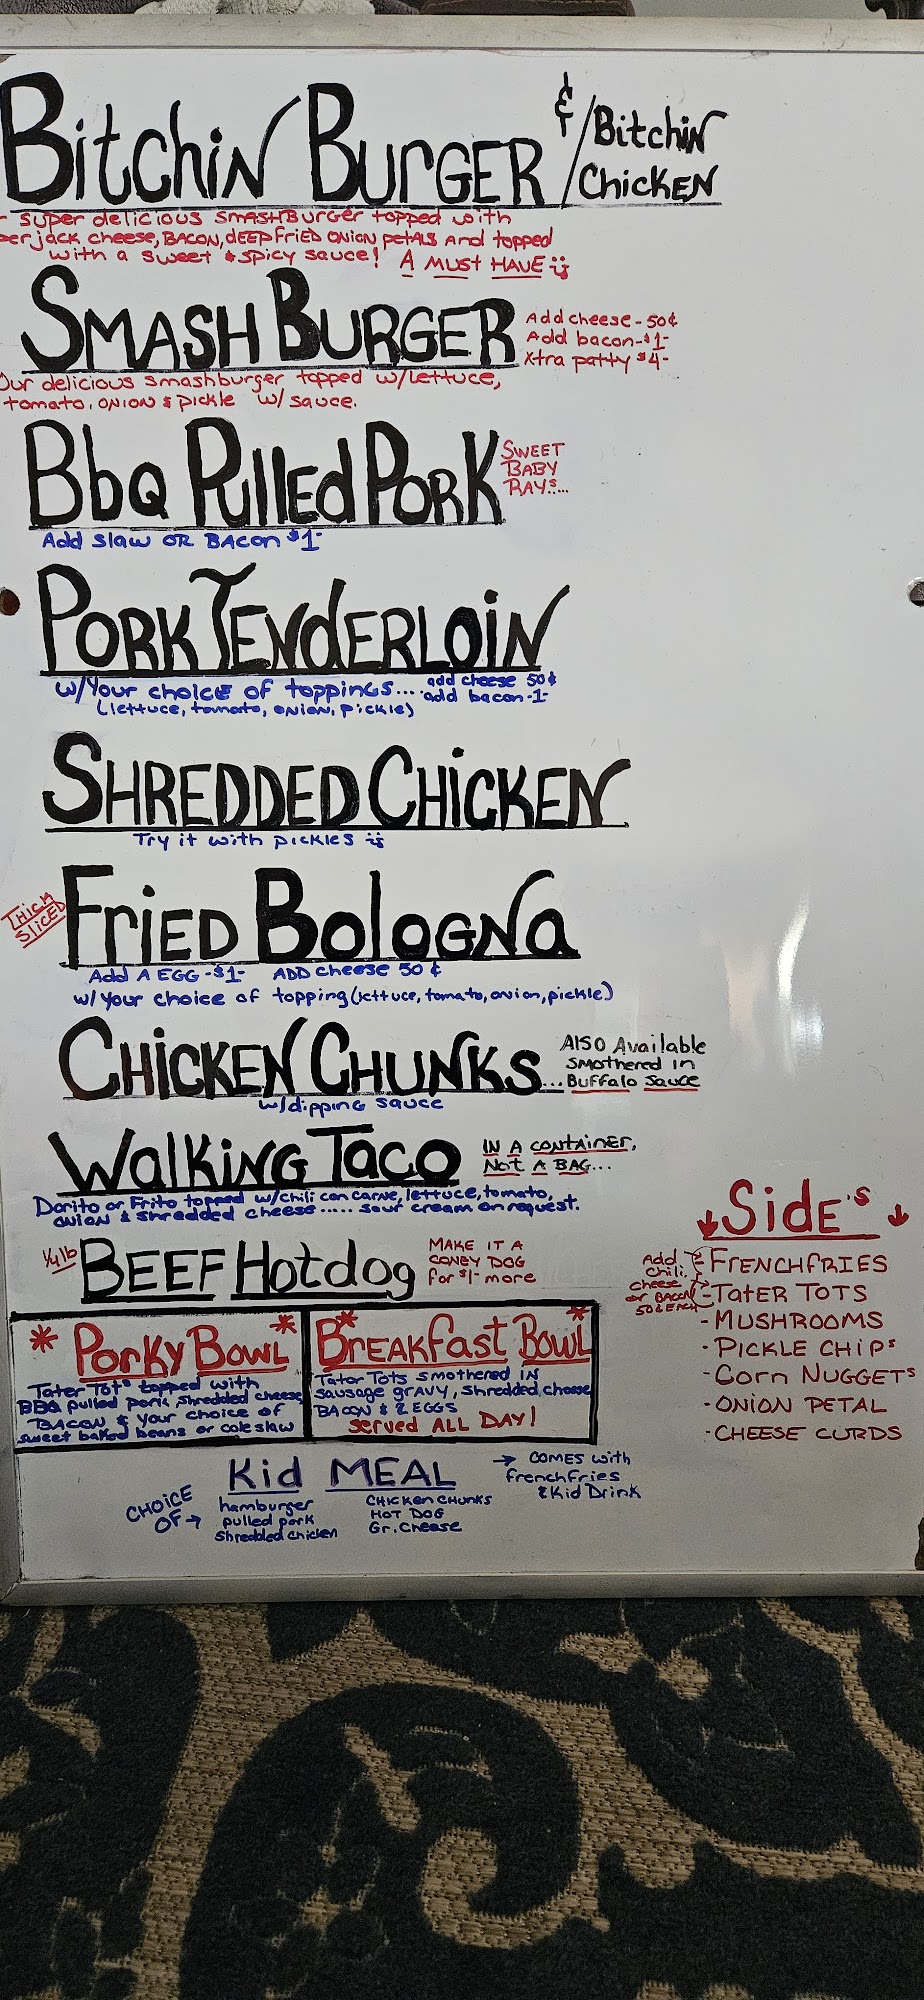 Bitchin Burger & / Bitchin Chicken
- super delicious smashburger topped with
perjack cheese, bacon, deep fried onion petals and topped
with a sweet & spicy sauce! A must have
Smash Burger
Add cheese - 50¢
Add bacon - $1-
Xtra patty $4-
Our delicious smashburger topped w/lettuce,
tomato, onion & pickle w/ sauce.
Bbq Pulled Pork
Sweet
Baby
Rays...
Add slaw or bacon $1-
Pork Tenderloin
w/Your choice of toppings....
(lettuce, tomato, onion, pickle)
add cheese 50¢
add bacon -1-
Shredded Chicken
Try it with pickles
Thick
Sliced
Fried Bologna
Add a egg -$1- Add cheese 50¢
w/ your choice of topping (lettuce, tomato, onion, pickle)
Chicken Chunks...
Also Available
smothered in
Buffalo Sauce
w/dipping sauce
Walking Taco
In a container,
Not a bag...
Dorito or Frito topped w/chili con carne, lettuce, tomato,
onion & shredded cheese..... sour cream on request.
1/4 lb
Beef Hotdog
Make it a
coney dog
for $1- more
* Porky Bowl *
Tater Tots topped with
BBQ pulled pork, shredded cheese
Bacon & your choice of
sweet baked beans or coleslaw
* Breakfast Bowl *
Tater Tots smothered in
sausage gravy, shredded cheese
Bacon & 2 eggs
served ALL DAY!
Side's
Add
chili,
cheese
or bacon
50¢ each
- French fries
- Tater Tots
- Mushrooms
- Pickle chips
- Corn nuggets
- Onion petal
- Cheese curds
Kid Meal
→ comes with
french fries
& Kid Drink
Choice
of →
hamburger
pulled pork
shredded chicken
chicken chunks
hot dog
Gr. cheese